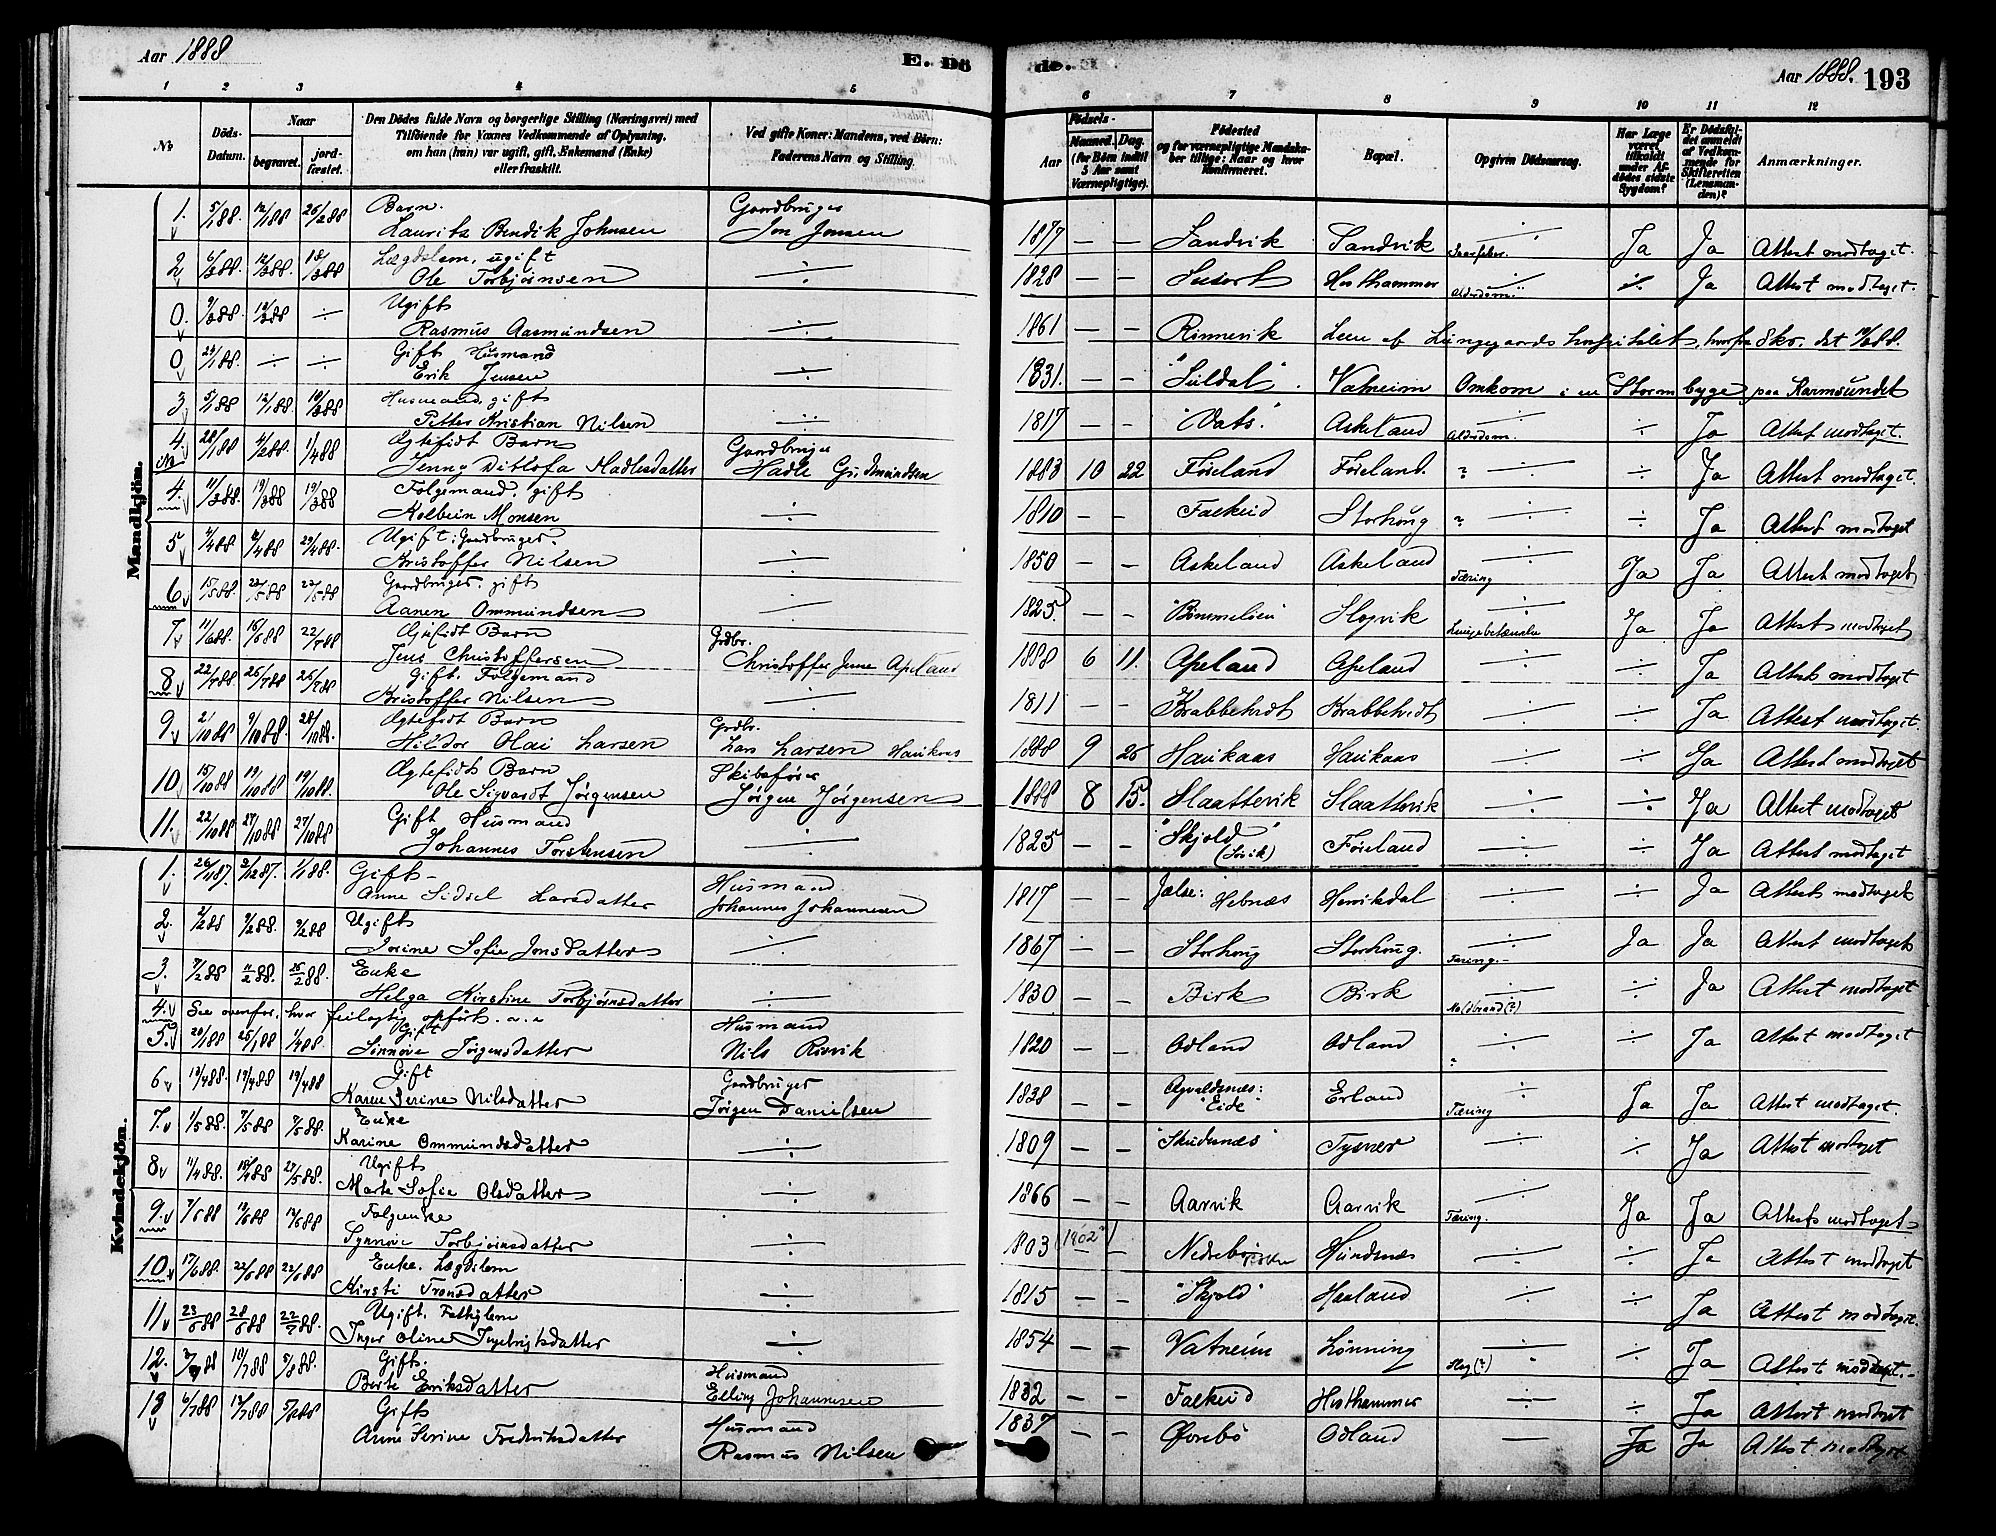 Aar 1888
E. Dö
de.
Aar 1888. 193
1 2 3 4 5 6 7 8 9 10 11 12
No
Döds-Datum.
Naar
begravet.
jord-fæstet.
Den Dödes fulde Navn og borgerlige Stilling (Næringsvei) med
Tilföiende for Voxnes Vedkommende af Oplysning,
om han (hun) var ugift, gift, Enkemand (Enke)
eller fraskilt.
Ved gifte Koner: Mandens, ved Börn:
Faderens Navn og Stilling.
Födsels-
Aar
Maaned. Dag.
(for Börn indtil
5 Aar samt
Værnepligtige).
Födested
og for værnepligtige Mandska-
ber tillige: Naar og hvor
konfirmeret.
Bopæl.
Opgiven Dödsaarsag.
Har Læge
været
tilkaldt
under Af-
dödes sidste
Sygdom?
Er Dödsfal-
det anmeldt
af Vedkom-
mende for
Skifteretten
(Lensman-
den)?
Anmærkninger.
Mandkjön.
1. 5/1 88 12/1 88 26/2 88 Barn. Gaardbruger
Laurits Bendik Johnsen Jon Jonsen 1877 — — Sandvik Sandvik Ja Ja Attest modtaget.
2 6/3 88. 12/3 88. 18/3 88 Lægdslem, ugift
Ole Torbjørnsen ÷ 1828 — — Hesthammer Alderdom ÷ Ja Attest modtaget.
0. 9/3 88. 12/3 88 ÷ Ugift
Rasmus Aasmundsen ÷ 1861 — — Rinnevik Lem af Lungegaards hospitalet, hvorfra
0 23/1 88. ÷ ÷ Gift Husmand
Erik Jensen ÷ 1831. — — "Suldal". Vatneim Omkom i en Storm byge paa Karmsundet
3. 5/1 88 12/1 88. 10/3 88 Husmand, gift
Petter Kristian Nilsen ÷ 1817 — — "Vats". Askeland Alderdom. ÷ Ja Attest modtaget.
4. 20/1 88 4/2 88 1/4 88 Ægtefødt Barn Gaardbruger
Jenny Ditlofa Hadlesdatter Hadle Gudmundsen 1883 10 22 Føreland Føreland. ? ÷ ÷ Ja Attest modtaget.
4. 11/3 88. 19/3 88 19/3 88 Folgemand, gift
Kolbein Monsen ÷ 1810 — — Falkeid Storhoug ? ÷ ÷ Ja Attest modtaget
5 4/4 88 88 29/4 88. Ugift; Gaardbruger.
Kristoffer Nilsen ÷ 1850 — — Askeland Askeland Tæring Ja Ja Attest modtaget
6 15/5 88. 23/5 88 23/5 88 Gaardbruger, gift
Aanen Ommundsen 1825 — — "Bømmeløen" Slogvik Lungebetændelse Ja Ja Attest modtaget
7. 11/6 88 15/6 88 22/7 88 Ægtefødt Barn Grdbr.
Jens Christoffersen Christoffer Jense Apeland 1888 6 11. Apeland Apeland ÷ ÷ Ja Attest modtaget
8 22/7 88 26/7 88 26/7 88 Gift. Folgemand
Kristoffer Nilsen ÷ 1811 — — Krabbetvedt Krabbetvedt ÷ Ja Attest modtaget.
9. 2/10 88 9/10 88. 28/10 88. Ægtefødt Barn Grdbr.
Hildor Olai Larsen Lars Larsen Haukaas 1888 9 26 Haukaas Haukaas ÷ ÷ Ja Attest modtaget
10. 15/10 88 19/10 88 19/10 88. Ægtefødt Barn Skibsfører
Ole Sigvardt Jørgensen Jørgen Jørgensen 1888 8 15. Slaattevik Slaattevik ÷ ÷ Ja Attest modtaget
11. 22/10 88 27/10 88 27/10 88 Gift Husmand
Johannes Torstensen ÷ 1825 — — "Skjold" Føreland ÷ ÷ Ja Attest modtaget
Kvindekjön.
1. 26/11 87. 2/12 87. 1/1 88. Gift Husmand
Anne Sidsel Larsdatter Johannes Johannesen 1817 — — Jælse: Hebnæs Henriksdal ÷ ÷ Ja Attest modtaget
2. 2/2 88 9/2 88. 9/2 88 Ugift
Jorine Sofie Jonsdatter 1867 — — Storhoug Storhoug. Tæring. Ja Ja Attest modtaget
3. 7/2 88 11/2 88. 25/2 88. Enke
Helga Kirstine Torbjørnsdatter ÷ 1830 — — Birk Birk Koldbrand (?) ÷ Ja Attest modtaget
4. See ovenfor, hvor feilagtig opført.
5. 20/1 88 26/1 88 1/4 88. Gift Husmand
Sinnove Jørgensdatter Nils Røvvik 1820 — — Odland Odland ? ÷ Ja Attest modtaget
6 13/4 88. 19/4 88. 19/4 88 Gift Gaardbruger
Karen Serine Nilsdatter Jørgen Danielsen 1838 — — Agvaldsnæs: "Eide" Erland Tæring Ja Ja Attest modtaget.
7. 1/5 88. 7/5 88 7/5 88. Enke
Karine Ommundsdatter ÷ 1809 — — "Skudesnæs" Tysver ÷ ÷ Ja Attest modtaget
8 11/4 88. 18/4 88 27/5 88. Ugift
Marte Sofie Olsdatter ÷ 1866 — — Aarvik Aarvik Tæring. Ja Ja Attest modtaget
9. 7/6 88 13/6 88 13/6 88 Folgeenke
Synnøve Torbjørnsdatter ÷ 1803 (1802?) — Nedrebø Hundsnæs ÷ ÷ Ja Attest modtaget
10. 17/6 88. 22/6 88 22/6 88 Enke. Lægdslem
Kirsti Tronsdatter ÷ 1815 — — "Skjold" Haaland Ja Attest modtaget.
11. 23/6 88 28/6 88 22/7 88. Ugift. Fattiglem
Inger Oline Ingebrigtsdatter ÷ 1854 — — Vatneim Lønning Slag (?) ÷ Ja Attest modtaget.
12. 88 10/7 88 5/8 88. Gift. Husmand
Berte Eriksdatter Elling Johannesen 1832 — — Falkeid Hesthammer ÷ ÷ Ja Attest modtaget
13 6/7 88 13/7 88 5/8 88 Gift Husmand
Anne Serine Fredriksdatter Rasmus Nilsen 1837 — — Øvrebø Odland — Ja Ja Attest modtaget